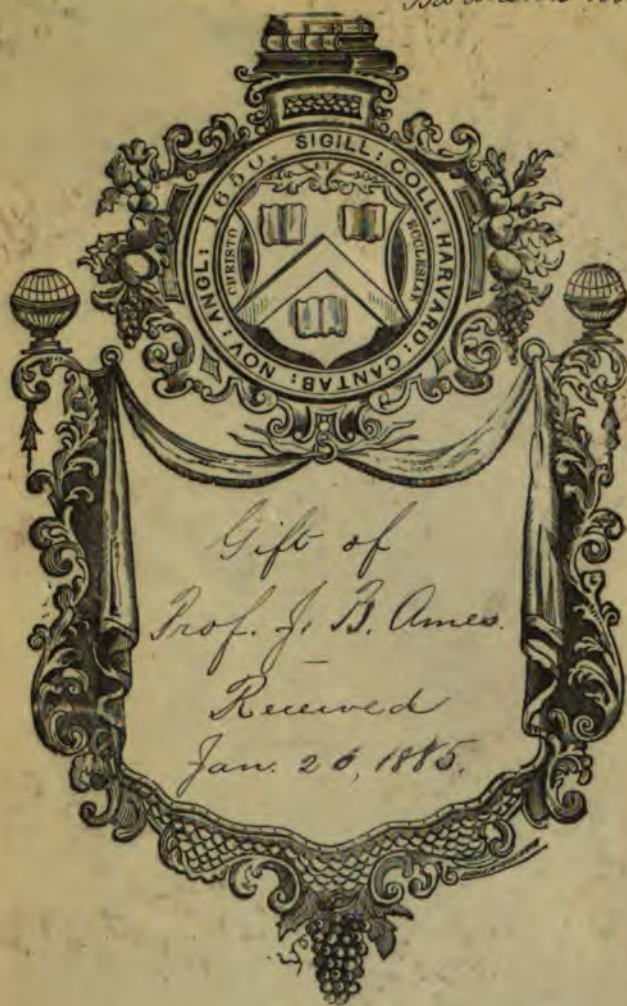 SIGILL: COLL: HARVARD: CANTAB: NOV: ANGL: 1650.
CHRISTO
ET
ECCLESIAE
Gift of
Prof. J. B. Ames.
Received
Jan. 26, 1885.